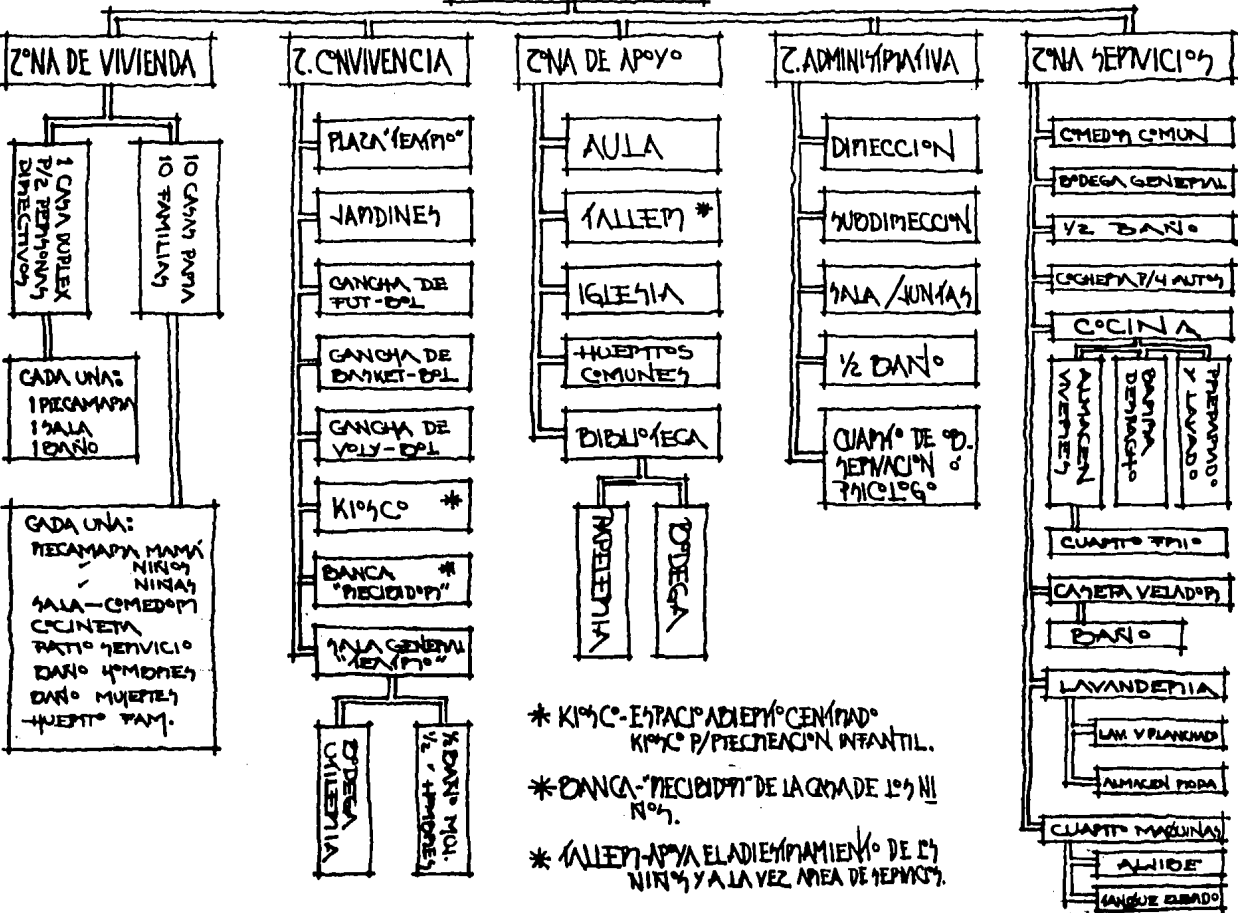 ZONA DE VIVIENDA
1 CASA DUPLEX
P/2 PERSONAS
DIRECTIVOS
10 CASAS PARA
10 FAMILIAS
CADA UNA:
1 RECAMARA
1 SALA
1 BAÑO
CADA UNA:
RECAMARA MAMÁ
✓ NIÑOS
✓ NIÑAS
SALA-COMEDOR
COCINETA
PATIO SERVICIO
BAÑO HOMBRES
BAÑO MUJERES
HUERTO FAM.
Z. CONVIVENCIA
PLAZA "TEATRO"
JARDINES
CANCHA DE
FUT-BOL
CANCHA DE
BASKET-BOL
CANCHA DE
VOLY-BOL
KIOSCO *
BANCA *
"RECIBIDOR"
SALA GENERAL
"TEATRO"
BODEGA
UTILERIA
½ BAÑO MUJ.
½ ✓ HOMBRES
ZONA DE APOYO
AULA
TALLER *
IGLESIA
HUERTOS
COMUNES
BIBLIOTECA
PAPELERIA
BODEGA
Z. ADMINISTRATIVA
DIRECCION
SUBDIRECCION
SALA/JUNTAS
½ BAÑO
CUARTO DE OB.
SERVACION O
PSICOLOGO
ZONA SERVICIOS
COMEDOR COMUN
BODEGA GENERAL
½ BAÑO
COCHERA P/4 AUTOS
COCINA
ALMACEN
VIVERES
BARRA
DESAYTO
PREPARADO
Y LAVADO
CUARTO FRIO
CASETA VELADOR
BAÑO
LAVANDERIA
LAV. Y PLANCHADO
ALMACEN ROPA
CUARTO MAQUINAS
ALJIBE
TANQUE ELEVADO
* KIOSCO-ESPACIO ABIERTO CENTRADO
KIOSCO P/RECREACION INFANTIL.
* BANCA-"RECIBIDOR" DE LA CASA DE LOS NI
ÑOS.
* TALLER-APOYA EL ADIESTRAMIENTO DE LOS
NIÑOS Y A LA VEZ AREA DE SERVICIOS.